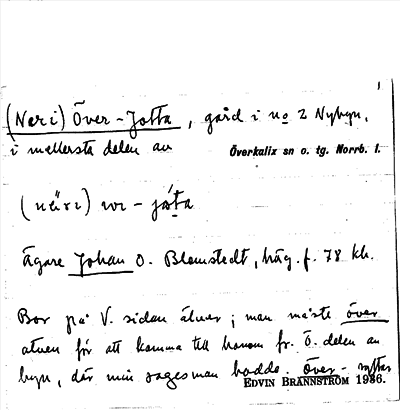 (Neri) Över-Jotta, gård i no 2 Nybyn,
i mellersta delen av
Överkalix sn o. tg. Norrb. l.
(näri) - játa
Ägare Johan O. Blomstedt, häg. f. 78 kh.
Bor på V. sidan älven; man måste över
älven för att komma till honom fr. Ö. delen av
byn, där min sagesman bodde. Över-
EDVIN BRÄNNSTRÖM 1936.